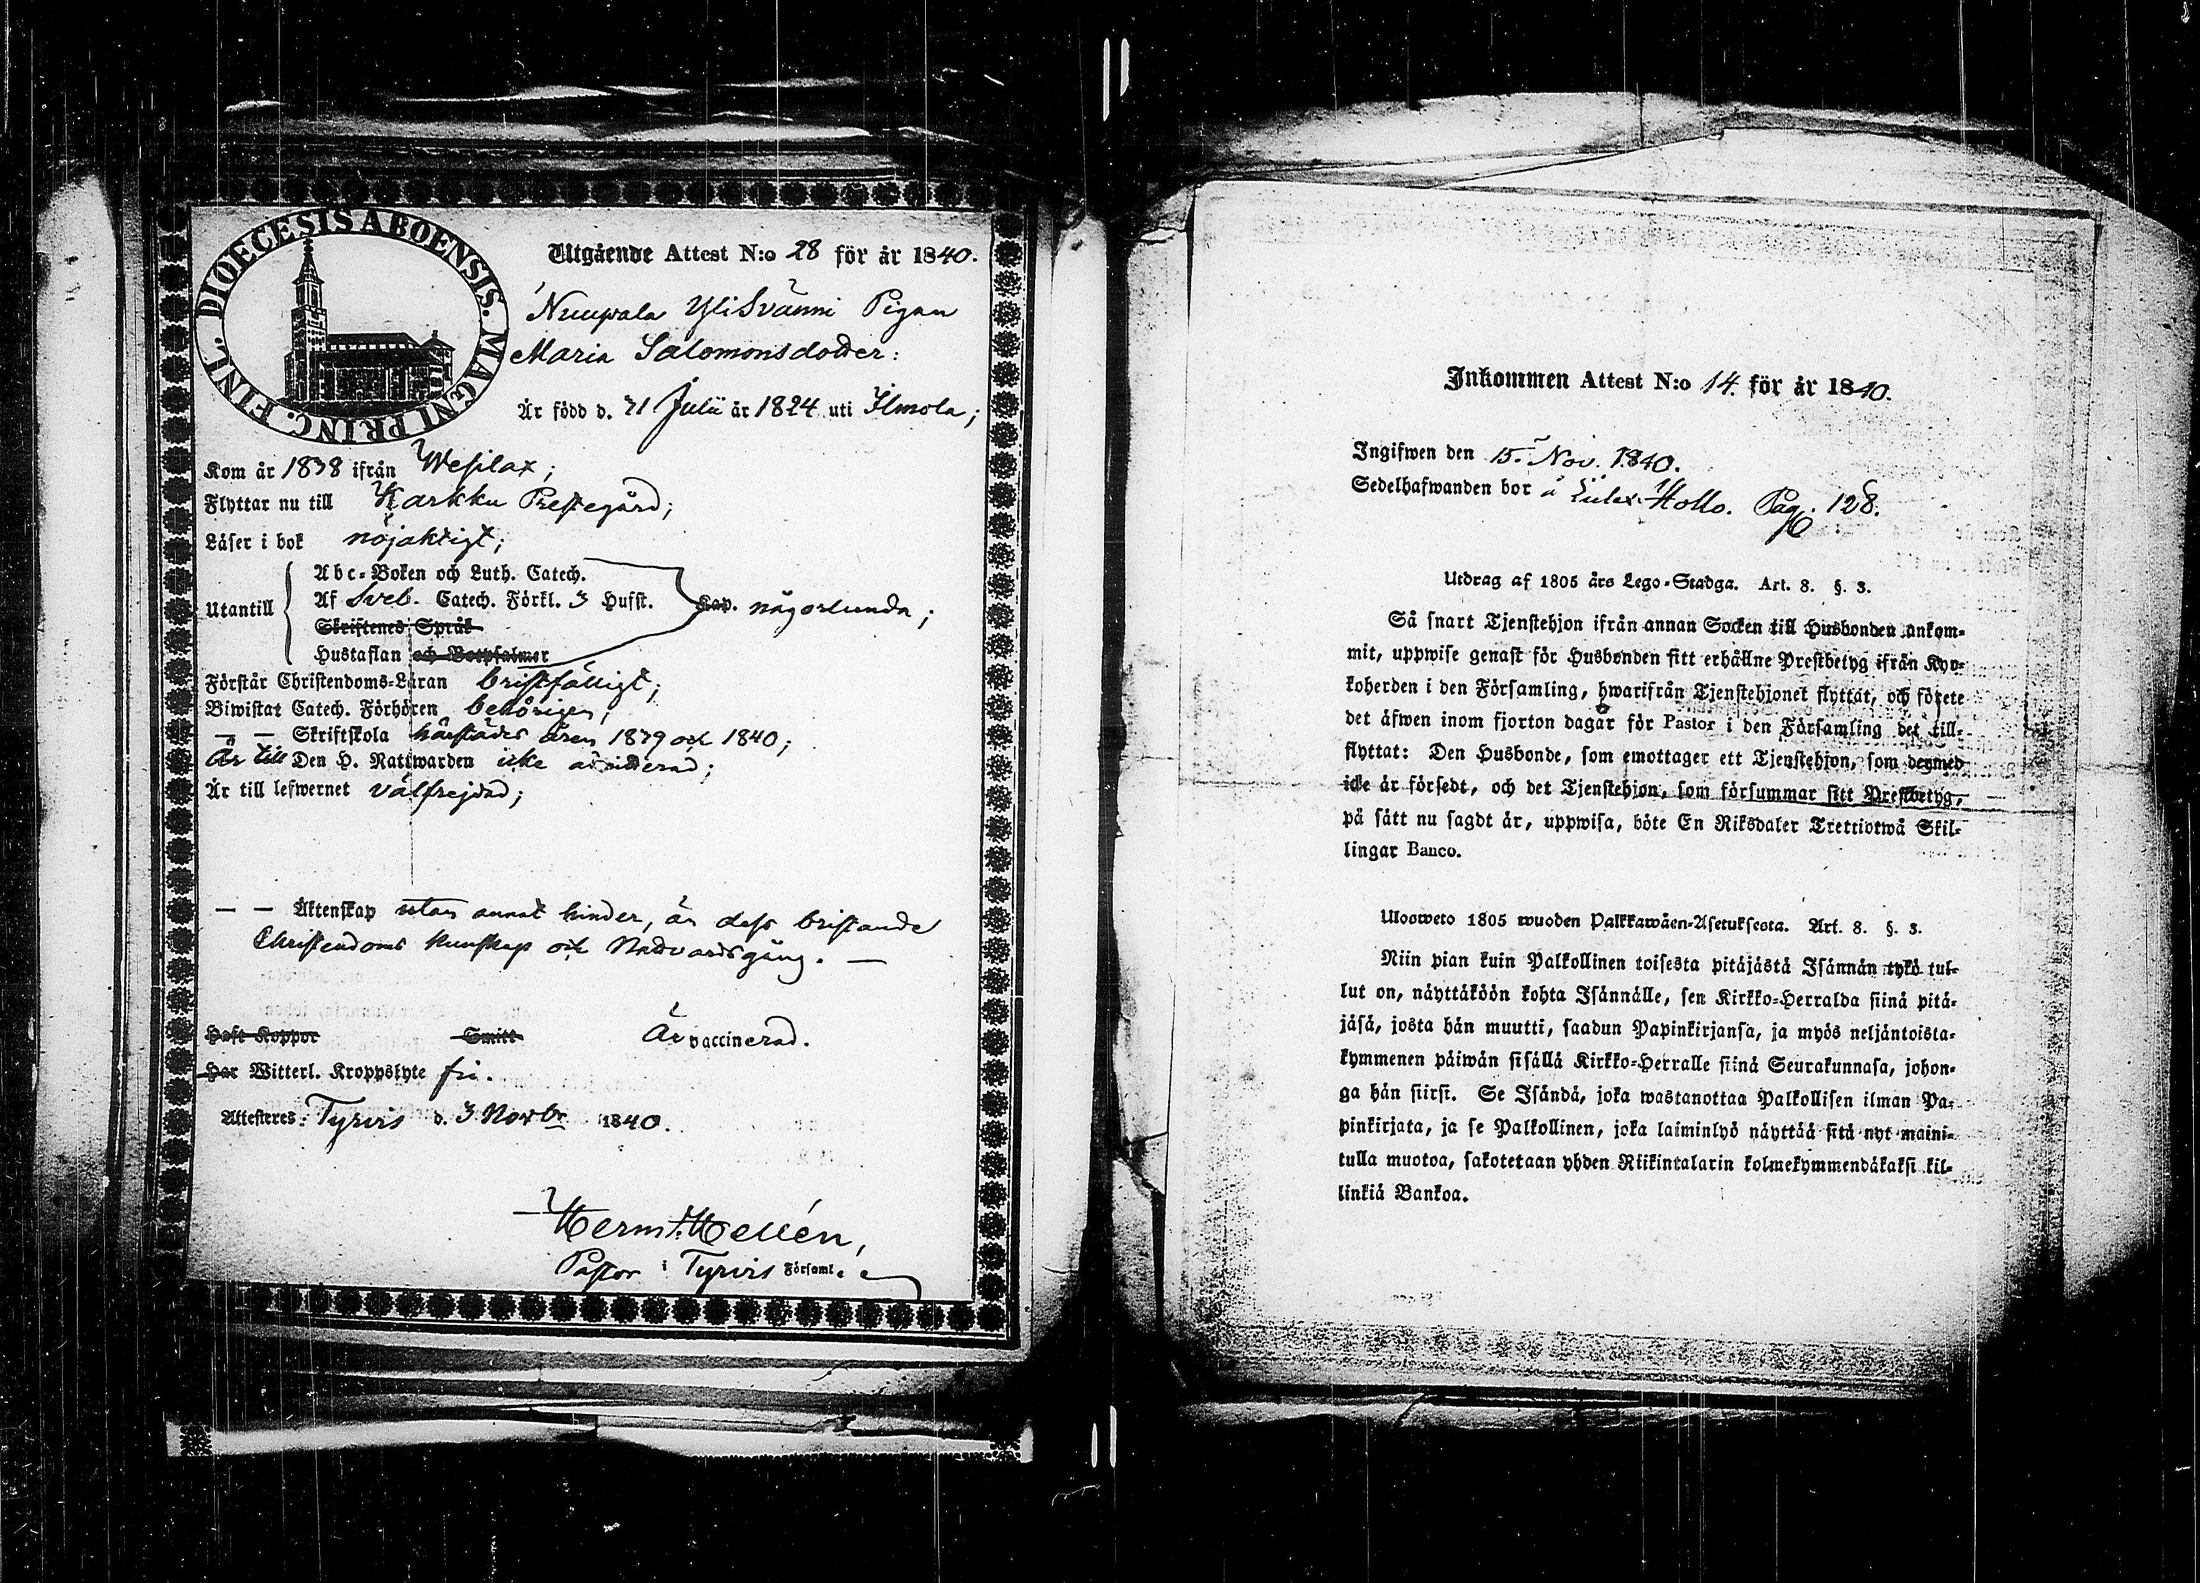 DIOECESIS ABOENSIS. MAGNI PRINC. FINL.
Utgående Attest N:o 28 för år 1840.
Nuupala YliSvänni Pigan
Maria Salomonsdotter:
Är född d. 21 Julii år 1824 uti Ilmola;
Kom år 1838 ifrån Wesilax;
Flyttar nu till Karkku Prestegård;
Läser i bok nöjaktigt;
Utantill
Abc-Boken och Luth. Catech.
Af Sveb. Catech. Förkl. 3 Hufst.
Skriftenes Språk
Hustaflan och Botpsalmer
Cap. någorlunda;
Förstår Christendoms-Läran bristfälligt;
Biwistat Catech. Förhören behörigen;
— — Skriftskola härstädes åren 1839 och 1840;
Är till Den H. Nattwarden icke admitterad;
Är till lefwernet välfrejdad;
— — Äktenskap utan annat hinder, än dess bristande
Christendoms kunskap och Nattvardsgång. —
Haft Koppor Smitt Är vaccinerad.
Har Witterl. Kroppslyte fri.
Attesteres: Tyrvis d. 3 Novbr 1840.
Herm. Hellén,
Pastor i Tyrvis Församl.
Inkommen Attest N:o 14. för år 1840.
Ingifwen den 15. Nov. 1840.
Sedelhafwanden bor å Hollo. Pag. 128.
Utdrag af 1805 års Lego-Stadga. Art. 8. §. 3.
Så snart Tjenstehjon ifrån annan Socken till Husbonden ankom-
mit, uppwise genast för Husbonden sitt erhållne Prestbetyg ifrån Kyr-
koherden i den Församling, hwarifrån Tjenstehjonet flyttat, och förete
det äfwen inom fjorton dagar för Pastor i den Församling det till-
flyttat: Den Husbonde, som emottager ett Tjenstehjon, som dermed
icke är försedt, och det Tjenstehjon, som försummar sitt Prestbetyg,
på sätt nu sagdt är, uppwisa, böte En Riksdaler Trettiotwå Skil-
lingar Banco.
Ulosweto 1805 wuoden Palkkawäen-Asetuksesta. Art. 8. §. 3.
Niin pian kuin Palkollinen toisesta pitäjästä Isännän tykö tul-
lut on, näyttäköön kohta Isännälle, sen Kirkko-Herralda siinä pitä-
jäsä, josta hän muutti, saadun Papinkirjansa, ja myös neljäntoista-
kymmenen päiwän sisällä Kirkko-Herralle siinä Seurakunnasa, johon-
ga hän siirsi. Se Isändä, joka wastanottaa Palkollisen ilman Pa-
pinkirjata, ja se Palkollinen, joka laiminlyö näyttää sitä nyt maini-
tulla muotoa, sakotetaan yhden Riikintalarin kolmekymmendäkaksi kil-
linkiä Bankoa.